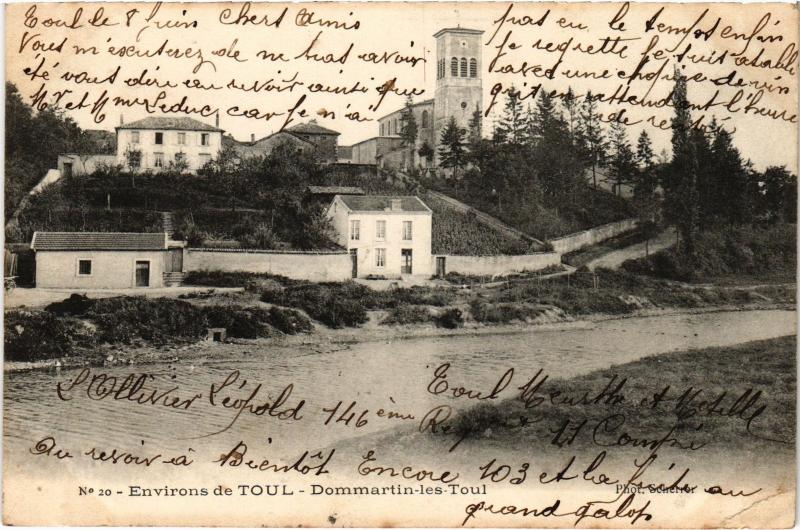 Toul le 8 Juin Chers Amis
Vous m'escuterez de ne pas avoir
été vous dire au revoir ainsi que
Mr et Mme Leduc car je n'ai
pas eu le temps enfin
Je regrette je suis
avec une de vin
en attendant l'heure
de
L'Ollivier Léopold 146ème
Toul Meurthe et Motelle
11 Compie
Au revoir à Bientôt Encore 103 et la fuite au
grand galop
No 20 - Environs de TOUL - Dommartin-les-Toul
Phot. Scherrer